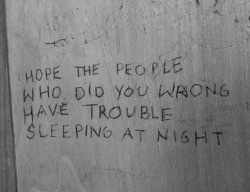 I HOPE THE PEOPLE
WHO DID YOU WRONG
HAVE TROUBLE
SLEEPING AT NIGHT